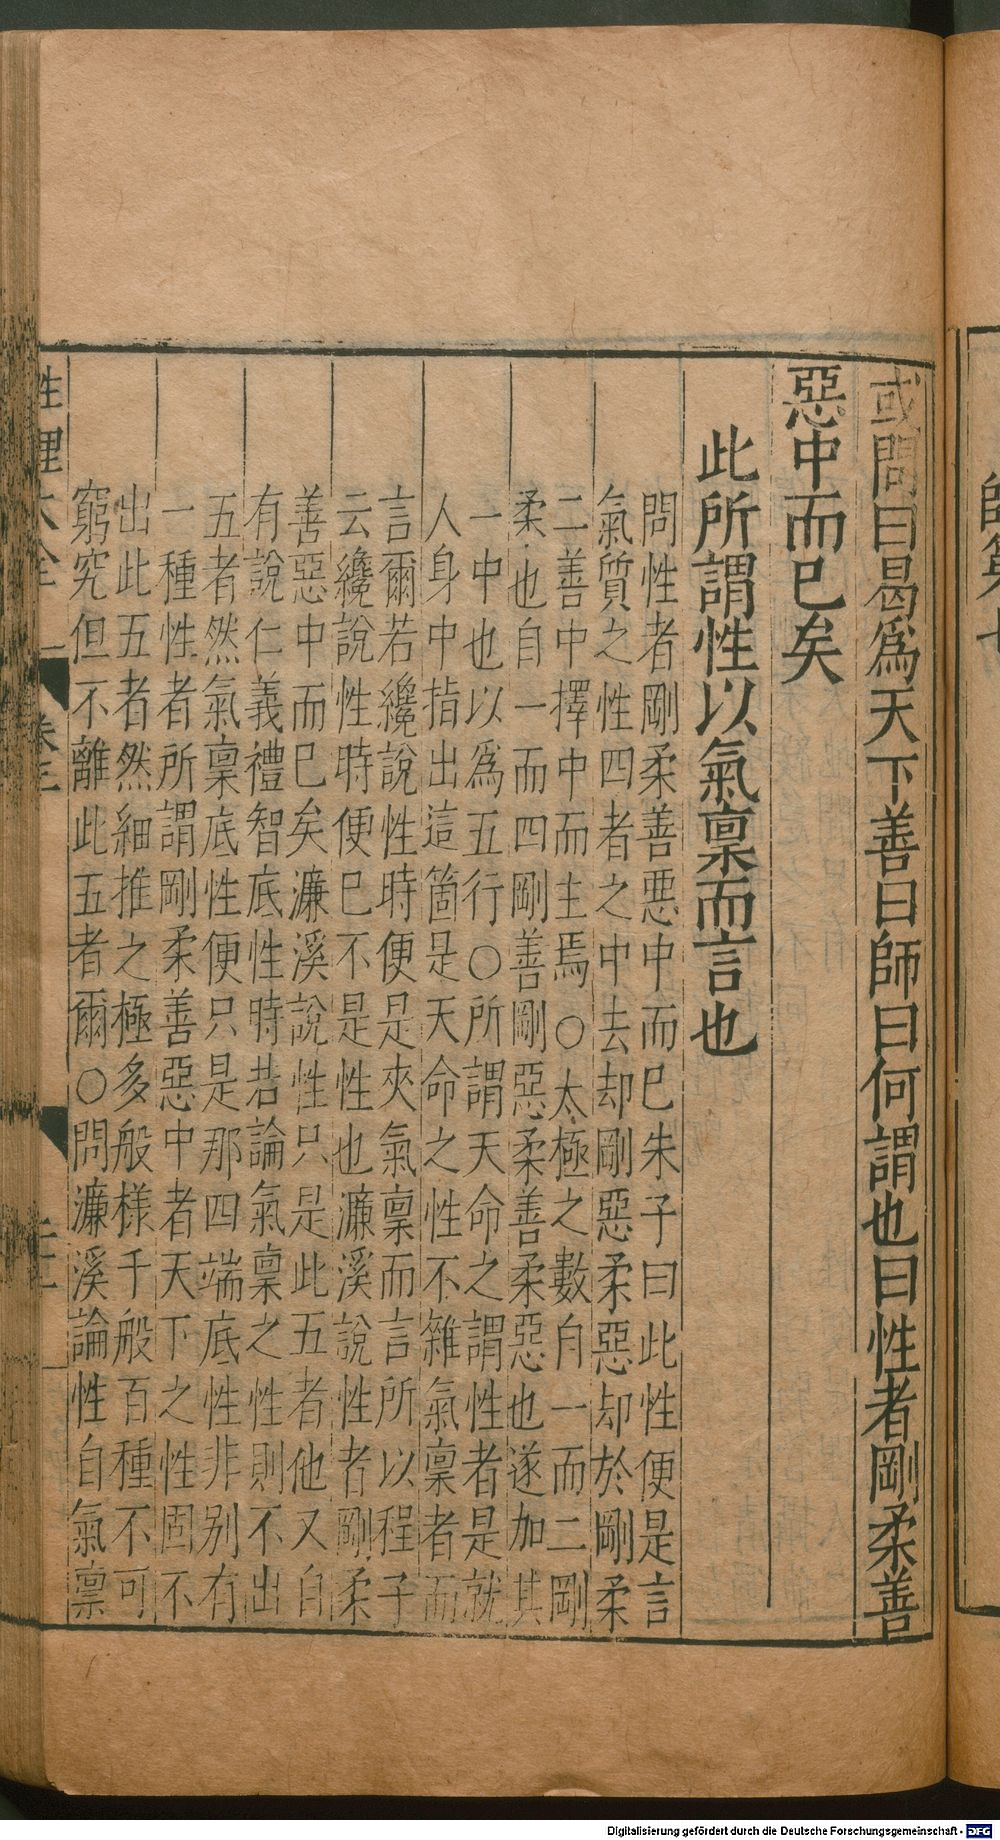 或問曰曷爲天下善曰師曰何謂也曰性者剛柔善
惡中而已矣
此所謂性以氣稟而言也
問性者剛柔善惡中而已朱子曰此性便是言
氣質之性四者之中去却剛惡柔惡却於剛柔
二善中擇中而主焉○太極之數自一而二剛
柔也自一而四剛善剛惡柔善柔惡也遂加其
一中也以爲五行○所謂天命之謂性者是就
人身中指出這箇是天命之性不雜氣稟者而
言爾若纔說性時便是夾氣稟而言所以程子
云纔說性時便已不是性也濂溪說性者剛柔
善惡中而已矣濂溪說性只是此五者他又自
有說仁義禮智底性時若論氣稟之性則不出
五者然氣稟底性便只是那四端底性非别有
一種性者所謂剛柔善惡中者天下之性固不
出此五者然細推之極多般樣千般百種不可
窮究但不離此五者爾○問濂溪論性自氣稟
性理大全 卷三
Digitalisierung gefördert durch die Deutsche Forschungsgemeinschaft - DFG